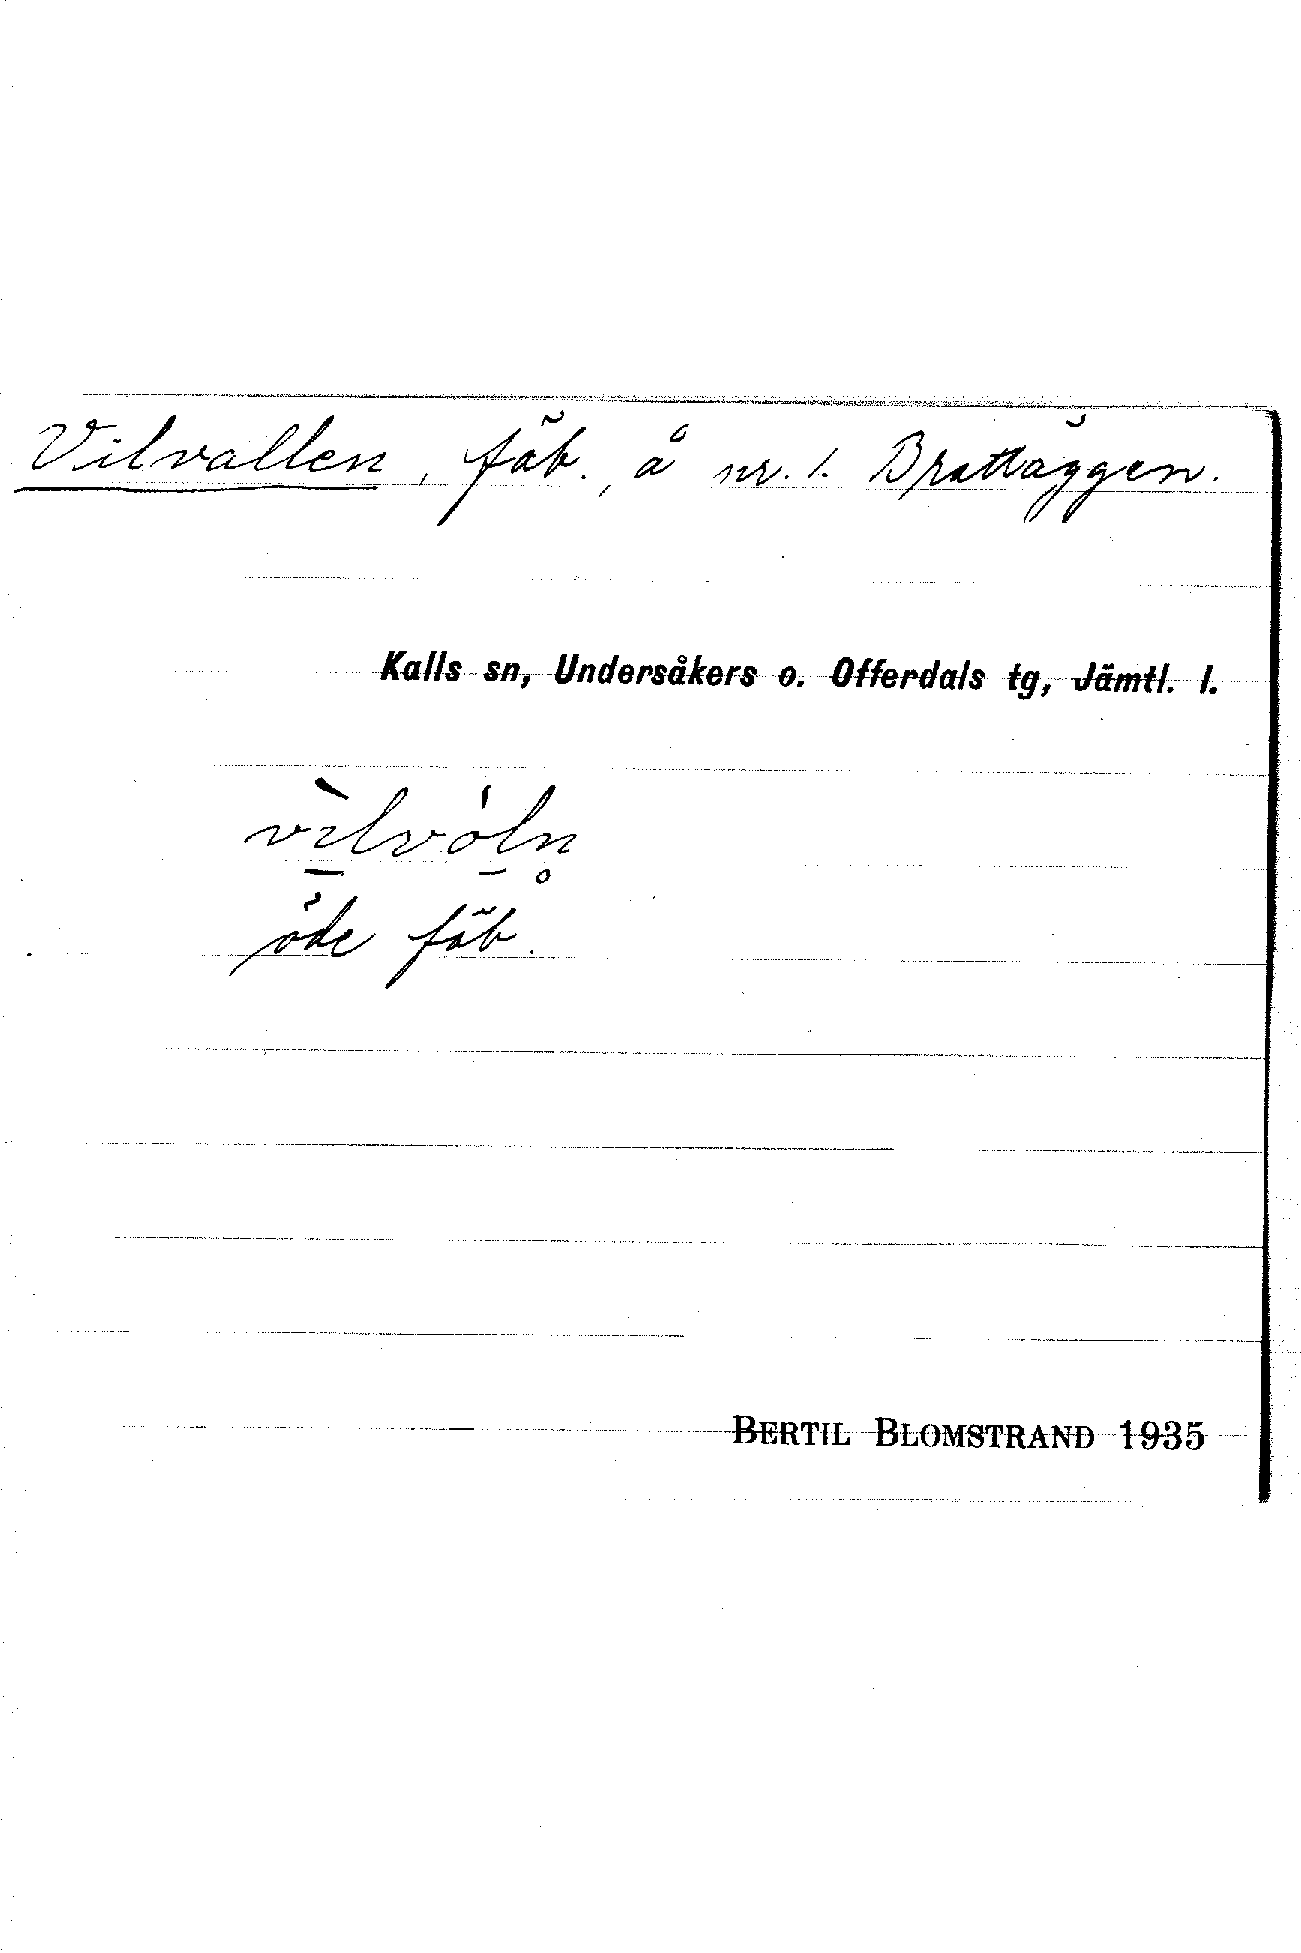 Vilvallen, fäb., å nr. 1. Brattäggen.
Kalls sn, Undersåkers o. Offerdals tg, Jämtl. l.
vìlvóln̥
öde fäb.
BERTIL BLOMSTRAND 1935